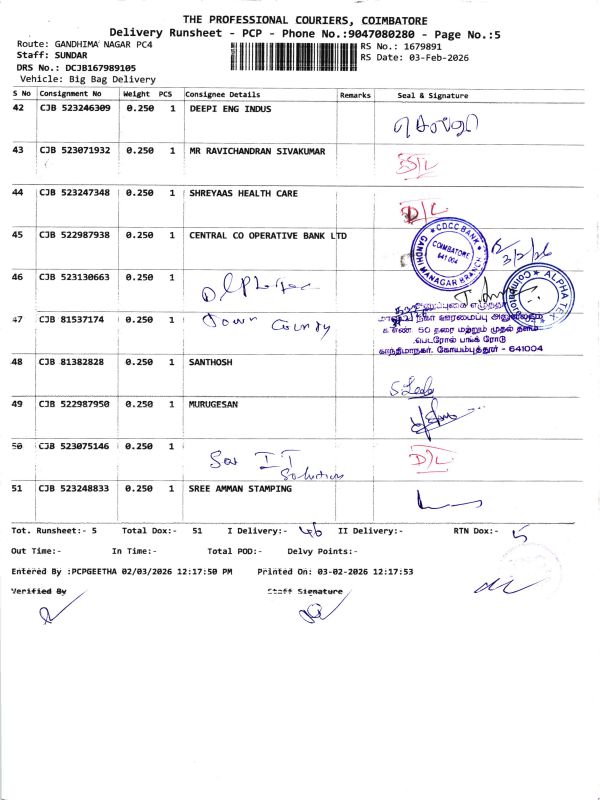 THE PROFESSIONAL COURIERS, COIMBATORE
Delivery Runsheet - PCP - Phone No.:9047080280 - Page No.:5
Route: GANDHIMA NAGAR PC4
RS No.: 1679891
Staff: SUNDAR
RS Date: 03-Feb-2026
DRS No.: DCJB167989105
Vehicle: Big Bag Delivery
S No Consignment No Weight PCS Consignee Details Remarks Seal & Signature
42 CJB 523246309 0.250 1 DEEPI ENG INDUS
43 CJB 523071932 0.250 1 MR RAVICHANDRAN SIVAKUMAR
44 CJB 523247348 0.250 1 SHREYAAS HEALTH CARE D/L
45 CJB 522987938 0.250 1 CENTRAL CO OPERATIVE BANK LTD
CDCC BANK
COIMBATORE
641 004
GANDHI MANAGAR BRANCH
3/2/26
46 CJB 523130663 0.250 1
ALPHA TEX
Coimbatore
47 CJB 81537174 0.250 1 Town County
உ எண். 50 தரை மற்றும் முதல் தளம்
பெடரோல் பங்க் ரோடு
காந்திமாநகர், கோயம்புத்தூர் - 641004
48 CJB 81382828 0.250 1 SANTHOSH
49 CJB 522987950 0.250 1 MURUGESAN
50 CJB 523075146 0.250 1 IT Solutions D/L
51 CJB 523248833 0.250 1 SREE AMMAN STAMPING
Tot. Runsheet:- 5 Total Dox:- 51 I Delivery:- 46 II Delivery:- RTN Dox:- 5
Out Time:- In Time:- Total POD:- Delvy Points:-
Entered By :PCPGEETHA 02/03/2026 12:17:50 PM Printed On: 03-02-2026 12:17:53
Verified By Staff Signature